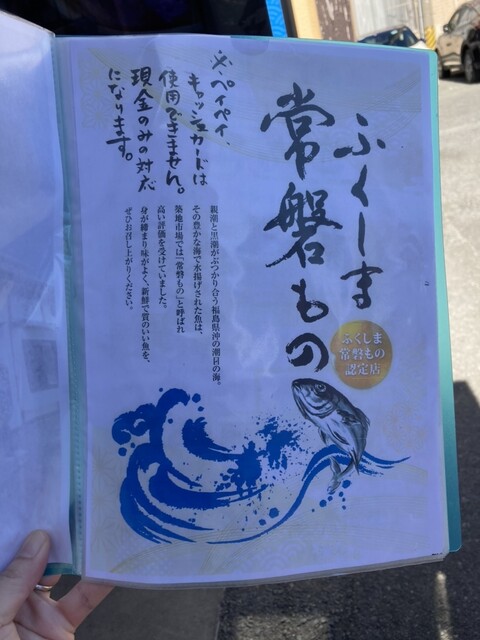 ふくしま
常磐もの
ふくしま
常磐もの
認定店
親潮と黒潮がぶつかり合う福島県沖の潮目の海。
その豊かな海で水揚げされた魚は、
築地市場では「常磐もの」と呼ばれ
高い評価を受けていました。
身が締まり味がよく、新鮮で質のいい魚を、
ぜひお召し上がりください。
※ペイペイ、
キャッシュカードは
使用できません。
現金のみの対応
になります。